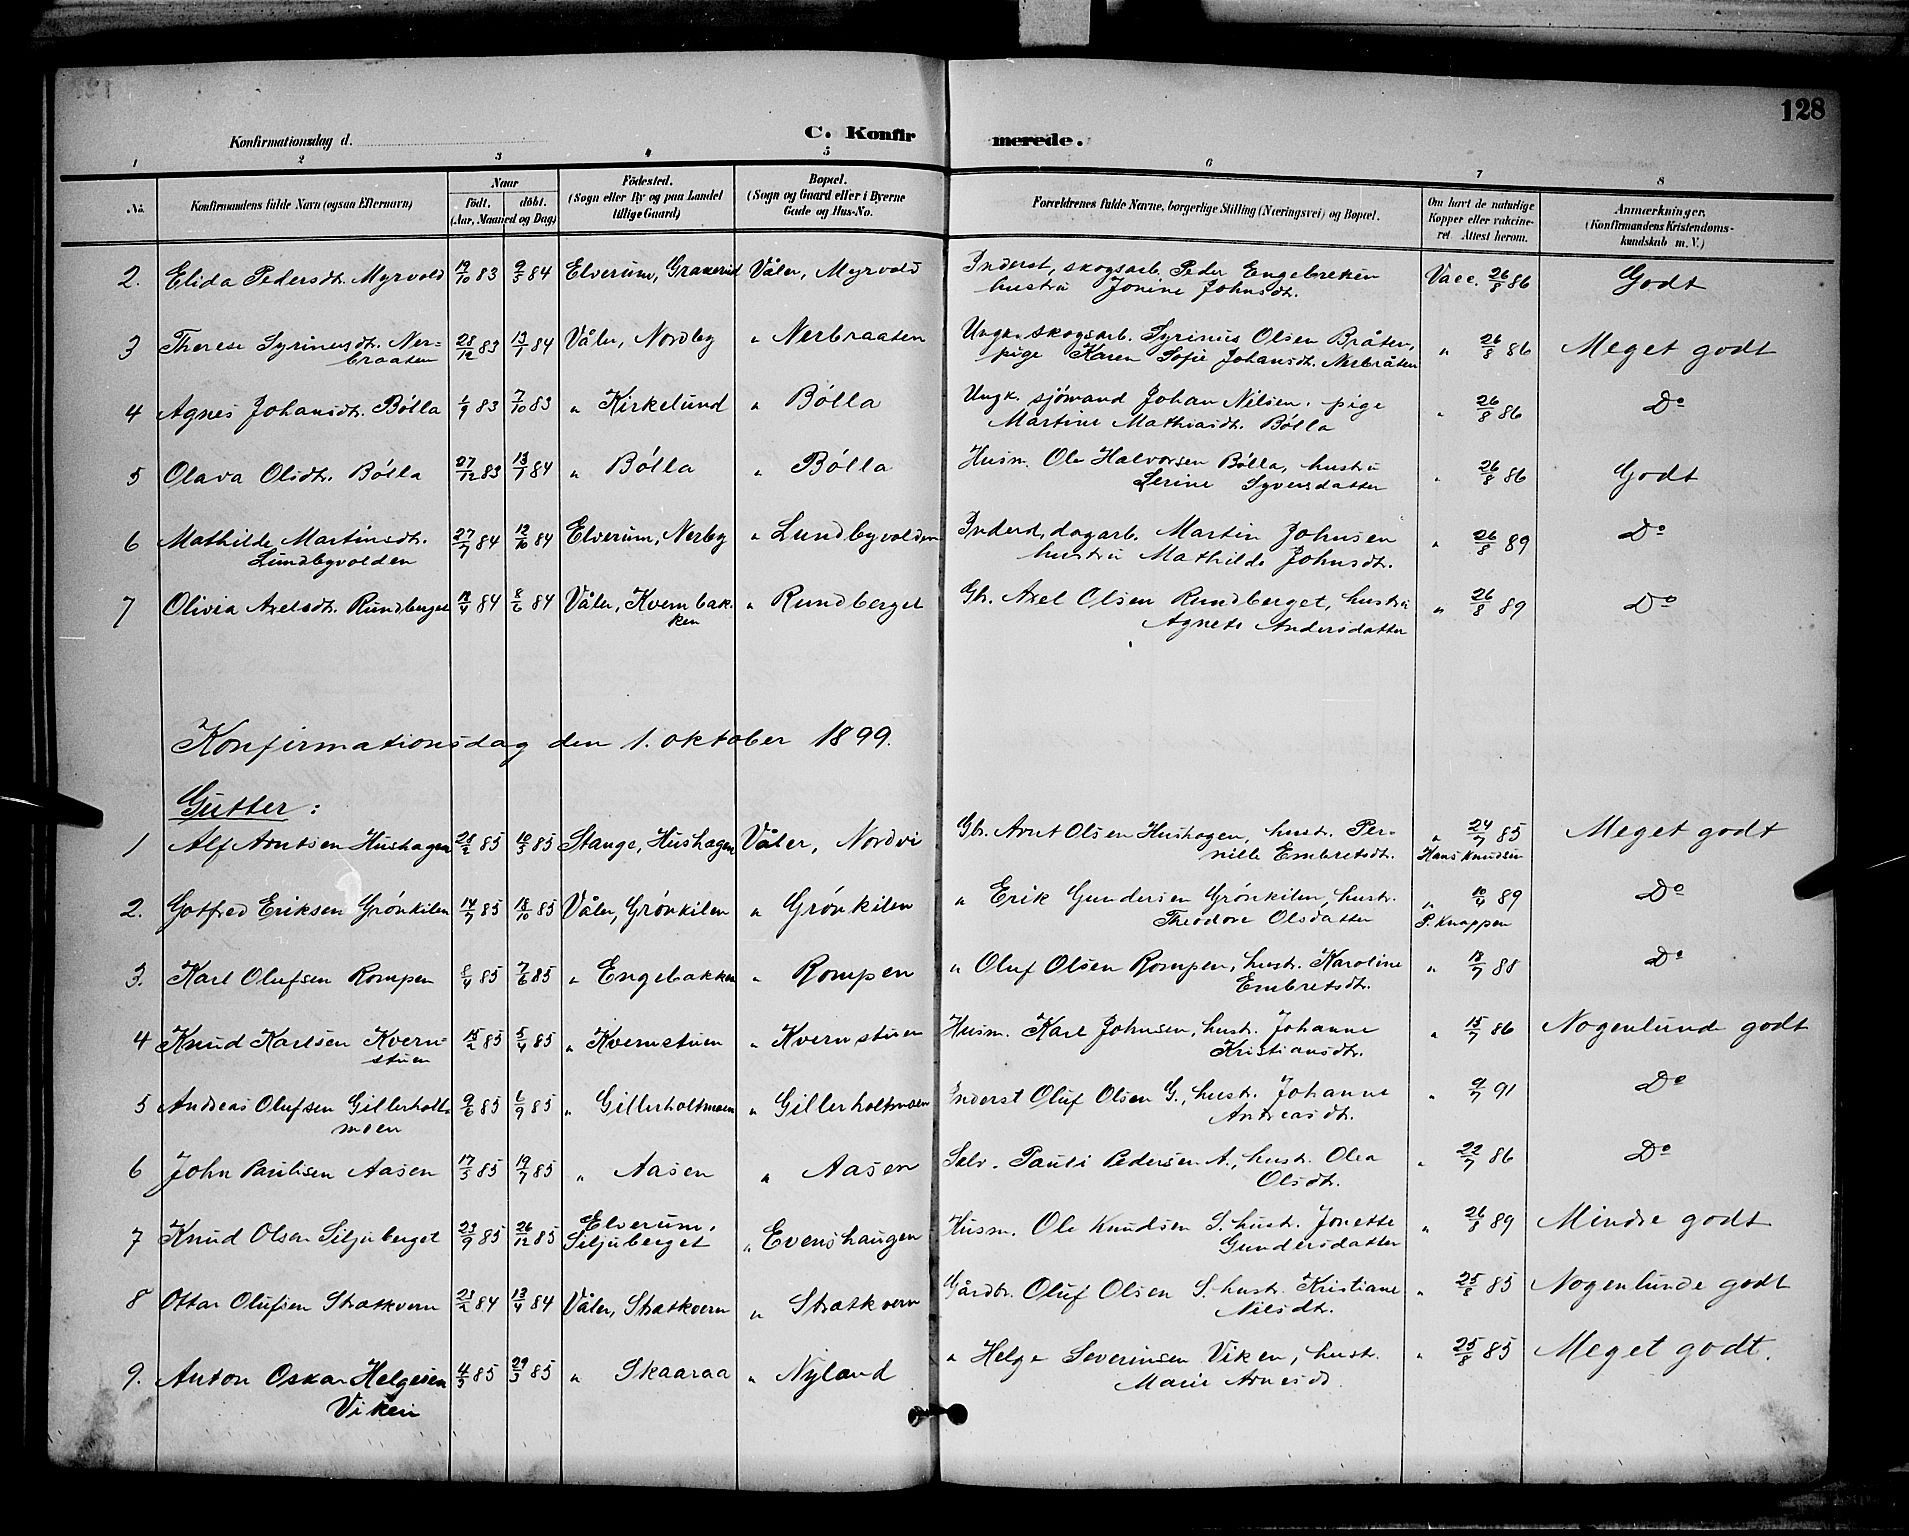 128
Konfirmationsdag d.
C. Konfirmerede.
1 2 3 4 5 6 7 8
No. Konfirmandens fulde Navn (ogsaa Efternavn) Naar født. døbt. (Aar, Maaned og Dag) Fødested. (Sogn eller By og paa Landet tillige Gaard) Bopæl. (Sogn og Gaard eller i Byerne Gade og Hus-No. Forældrenes fulde Navne, borgerlige Stilling (Næringsvei) og Bopæl. Om havt de naturlige Kopper eller vakcineret. Attest herom. Anmærkninger. (Konfirmandens Kristendomskundskab m. V.)
2. Elida Pedersdt. Myrvold 19/10 83 9/3 84 Elverum, Graverud Våler, Myrvold Inderst, skogsarb. Peder Engebretsen Vacc. 26/8 86 Godt
hustru Jonine Johnsdt.
3 Therese Syrinusdt. Ner- 28/12 83 13/1 84 Våler, Nordby " Nerbraaten Ungk. skogsarb. Syrinus Olsen Bråten, " 26/8 86 Meget godt
braaten pige Karen Sofie Johansdt. Nerbråten
4 Agnes Johansdt. Bölla 1/9 83 7/10 83 " Kirkelund " Bölla Ungk. sjömand Johan Nilsen, pige " 26/8 86 Do
Martine Mathiasdt. Bölla
5 Olava Olsdt. Bölla 27/12 83 13/1 84 " Bölla " Bölla Husm. Ole Halvorsen Bölla, hustru " 26/8 86 Godt
Serine Syversdatter
6 Mathilde Martinsdt. 27/7 84 12/10 84 Elverum, Nerby " Lundbyvolden Inderst, dagarb. Martin Johnsen " 26/8 89 Do
Lundbyvolden hustru Mathilde Johnsdt.
7 Olivia Axelsdt. Rundberget 12/4 84 8/6 84 Våler, Kvernbak- " Rundberget Gbr. Axel Olsen Rundberget, hustru " 26/8 89 Do
ken Agnete Andersdatter
Konfirmationsdag den 1. oktober 1899.
Gutter:
1 Alf Arntsen Hushagen 28/2 85 10/3 85 Stange, Hushagen Våler, Nordvi Gbr. Arnt Olsen Hushagen, hustr. Per- " 24/7 85 Meget godt
nille Embretsdt. Hans Knudsen
2. Gotfred Eriksen Grönkilen 14/7 85 18/10 85 Våler, Grönkilen " Grönkilen " Erik Gundersen Grönkilen, hustr. " 10/4 89 Do
Theodore Olsdatter P. Knappen
3. Karl Olufsen Rompen 8/4 85 7/6 85 " Engebakken " Rompen " Oluf Olsen Rompen, hustr. Karoline " 18/7 88 Do
Embretsdt.
4 Knud Karlsen Kvern- 15/2 85 5/4 85 " Kvernstuen " Kvernstuen Husm. Karl Johnsen, hustr. Johanne " 15/7 86 Nogenlund godt
stuen Kristiansdt.
5 Andreas Olufsen Gillerholt- 9/6 85 6/9 85 " Gillerholtmoen " Gillerholtmoen Inderst Oluf Olsen G., hustr. Johanne " 9/7 91 Do
moen Andreasdt.
6 John Paulisen Aasen 17/5 85 19/7 85 " Aasen " Aasen Selv. Pauli Pedersen A., hustr. Olea " 22/7 86 Do
Olsdt.
7 Knud Olsen Siljuberget 23/9 85 26/12 85 Elverum, Siljuberget " Evenshaugen Husm. Ole Knudsen S. hustr. Jonette " 26/8 89 Mindre godt
Gundersdatter
8 Ottar Olufsen Strætkvern 23/2 84 13/4 84 Våler, Strætkvern " Strætkvern Gårdbr. Oluf Olsen S. hustr. Kristiane " 25/8 85 Nogenlunde godt
Nilsdt.
9. Anton Oskar Helgesen 4/3 85 29/3 85 " Skaaraa " Nyland " Helge Severinsen Viken, hustr. " 25/8 85 Meget godt.
Viken Marie Arnesd.